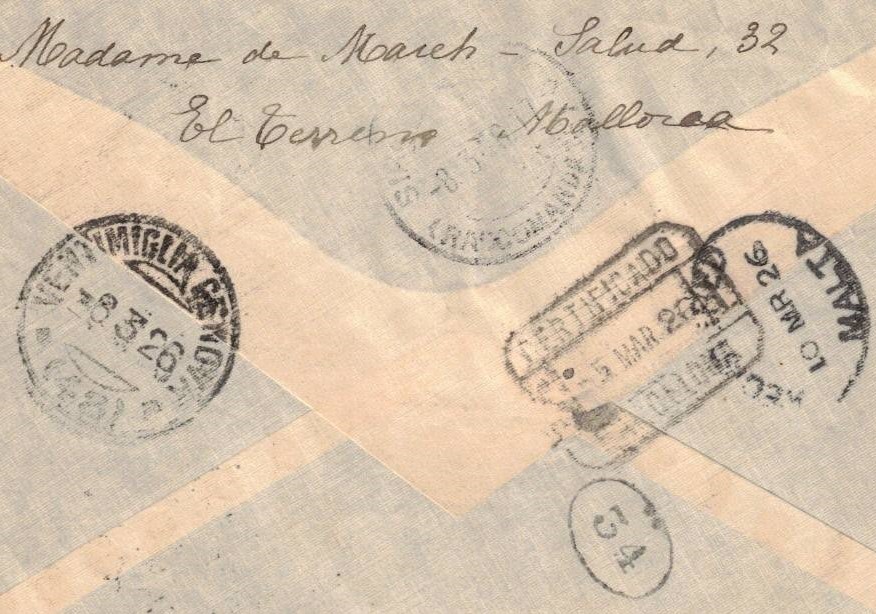 Madame de March - Salud, 32
El Terreno Mallorca
-8.3.26
RACCOMANDA
VENTIMIGLIA GENOVA
-8.3.26
CERTIFICADO
-5 MAR 26
MALTA
10 MR 26
54